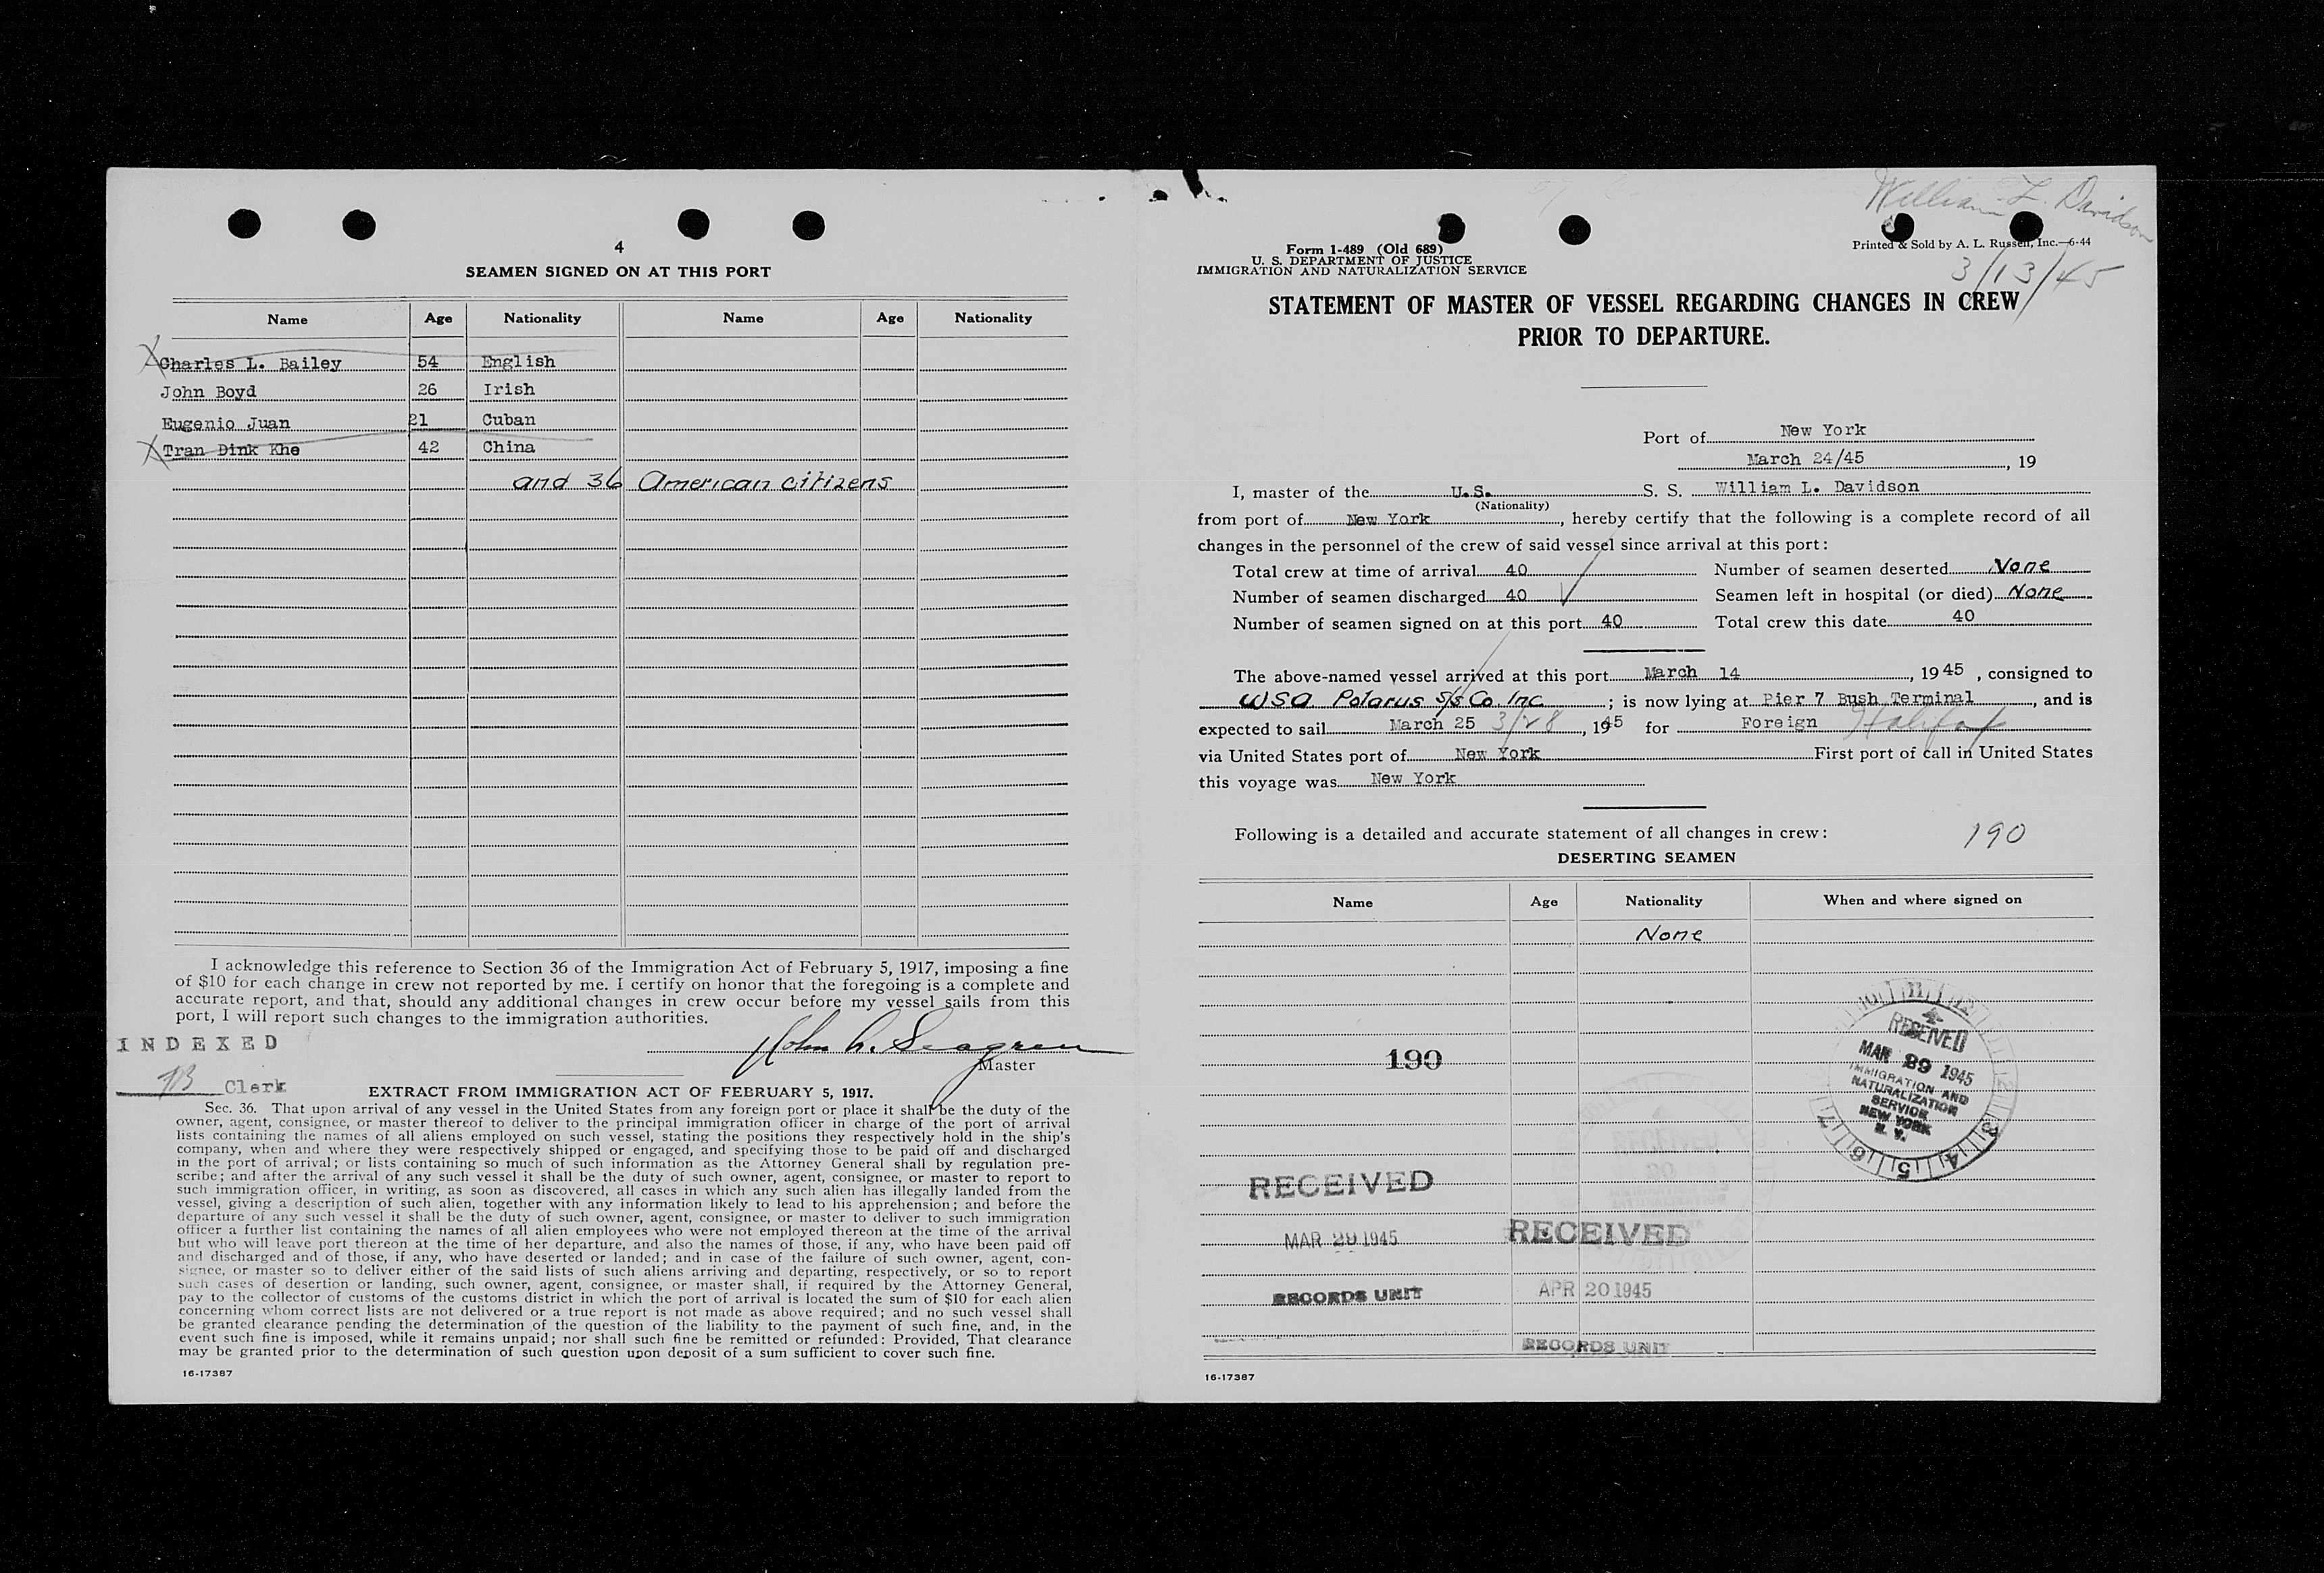 4
SEAMEN SIGNED ON AT THIS PORT
Name Age Nationality Name Age Nationality
Charles L. Bailey 54 English
John Boyd 26 Irish
Eugenio Juan 21 Cuban
Tran Dink Khe 42 China
and 36 American citizens
I acknowledge this reference to Section 36 of the Immigration Act of February 5, 1917, imposing a fine
of $10 for each change in crew not reported by me. I certify on honor that the foregoing is a complete and
accurate report, and that, should any additional changes in crew occur before my vessel sails from this
port, I will report such changes to the immigration authorities.
INDEXED
John A. Seagren
Master
Clerk
EXTRACT FROM IMMIGRATION ACT OF FEBRUARY 5, 1917.
Sec. 36. That upon arrival of any vessel in the United States from any foreign port or place it shall be the duty of the
owner, agent, consignee, or master thereof to deliver to the principal immigration officer in charge of the port of arrival
lists containing the names of all aliens employed on such vessel, stating the positions they respectively hold in the ship's
company, when and where they were respectively shipped or engaged, and specifying those to be paid off and discharged
in the port of arrival; or lists containing so much of such information as the Attorney General shall by regulation pre-
scribe; and after the arrival of any such vessel it shall be the duty of such owner, agent, consignee, or master to report to
such immigration officer, in writing, as soon as discovered, all cases in which any such alien has illegally landed from the
vessel, giving a description of such alien, together with any information likely to lead to his apprehension; and before the
departure of any such vessel it shall be the duty of such owner, agent, consignee, or master to deliver to such immigration
officer a further list containing the names of all alien employees who were not employed thereon at the time of the arrival
but who will leave port thereon at the time of her departure, and also the names of those, if any, who have been paid off
and discharged and of those, if any, who have deserted or landed; and in case of the failure of such owner, agent, con-
signee, or master so to deliver either of the said lists of such aliens arriving and departing, respectively, or so to report
such cases of desertion or landing, such owner, agent, consignee, or master shall, if required by the Attorney General,
pay to the collector of customs of the customs district in which the port of arrival is located the sum of $10 for each alien
concerning whom correct lists are not delivered or a true report is not made as above required; and no such vessel shall
be granted clearance pending the determination of the question of the liability to the payment of such fine, and, in the
event such fine is imposed, while it remains unpaid; nor shall such fine be remitted or refunded: Provided, That clearance
may be granted prior to the determination of such question upon deposit of a sum sufficient to cover such fine.
16-17387
William L. Davidson
Form 1-489 (Old 689)
U. S. DEPARTMENT OF JUSTICE
IMMIGRATION AND NATURALIZATION SERVICE
Printed & Sold by A. L. Russell, Inc.—6-44
3/13/45
STATEMENT OF MASTER OF VESSEL REGARDING CHANGES IN CREW
PRIOR TO DEPARTURE.
Port of New York
March 24/45, 19
I, master of the U.S. S. S. William L. Davidson
(Nationality)
from port of New York, hereby certify that the following is a complete record of all
changes in the personnel of the crew of said vessel since arrival at this port:
Total crew at time of arrival 40 Number of seamen deserted None
Number of seamen discharged 40 Seamen left in hospital (or died) None
Number of seamen signed on at this port 40 Total crew this date 40
The above-named vessel arrived at this port March 14, 1945, consigned to
WSA Polarus S/S Co. Inc; is now lying at Pier 7 Bush Terminal, and is
expected to sail March 25 3/28, 1945 for Foreign Halifax
via United States port of New York First port of call in United States
this voyage was New York
Following is a detailed and accurate statement of all changes in crew: 190
DESERTING SEAMEN
Name Age Nationality When and where signed on
None
190
10 11 12
RECEIVED
MAR 29 1945
IMMIGRATION AND
NATURALIZATION
SERVICE
NEW YORK
N. Y.
2 3 4 5 6 7
RECEIVED
MAR 29 1945
RECORDS UNIT
RECEIVED
APR 20 1945
RECORDS UNIT
16-17387